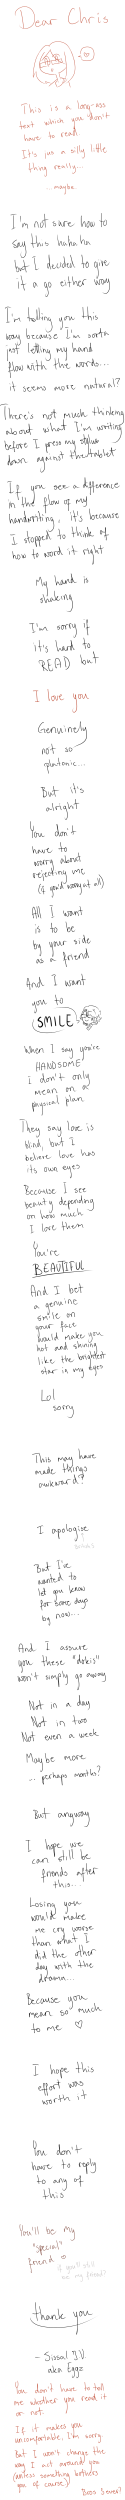 Dear Chris
This is a long-ass
text which you don't
have to read
It's just a silly little
thing really...
...maybe
I'm not sure how to
say this haha ha
but I decided to give
it a go either way
I'm telling you this
way because I'm sorta
just letting my hand
flow with the words...
it seems more natural?
There's not much thinking
about what I'm writing
before I press my stylus
down against the tablet
If you see a difference
in the flow of my
handwriting, it's because
I stopped to think of
how to word it right
My hand is
shaking
I'm sorry if
it's hard to
READ but
I love you
Genuinely
not so
platonic...
But it's
alright
You don't
have to
worry about
rejecting me
(if you'd worry at all)
All I want
is to be
by your side
as a friend
And I want
you to
SMILE
When I say you're
HANDSOME
I don't only
mean on a
physical plan
They say love is
blind, but I
believe love has
its own eyes
Because I see
beauty depending
on how much
I love them
You're
BEAUTIFUL
And I bet
a genuine
smile on
your face
would make you
hot and shining
like the brightest
star in my eyes
Lol
sorry
This may have
made things
awkward?
I apologise
But I've
wanted to
let you know
for some days
by now...
And I assure
you these "dokis"
won't simply go away
Not in a day
Not in two
Not even a week
Maybe more
... perhaps months?
But anyway
I hope we
can still be
friends after
this...
Losing you
would make
me cry worse
than what I
did the other
day with the
drama...
Because you
mean so much
to me ♡
I hope this
effort was
worth it
You don't
have to reply
to any of
this
You'll be my
"special"
friend ♡
if you'll still
be my friend?
thank you
- Sissal JV
aka Eggz
You don't have to tell
me whether you read it
or not.
If it makes you
uncomfortable, I'm sorry
But I won't change the
way I act around you
(unless something bothers
you of course)